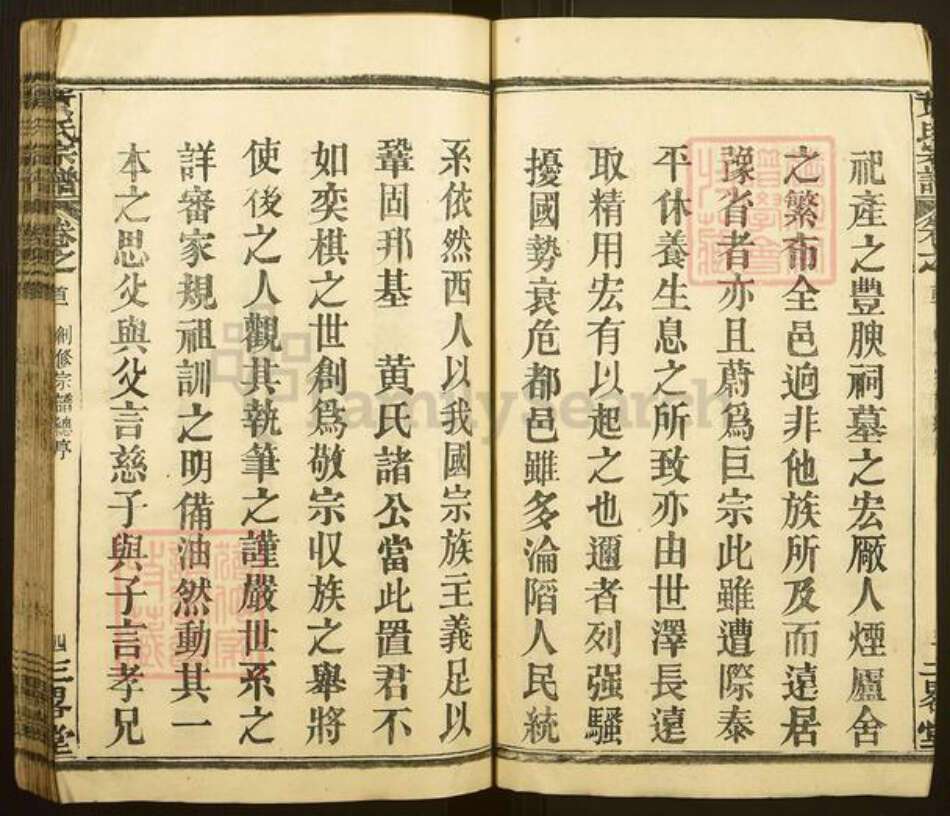 祀產之豐腴祠墓之宏厰人煙廬舍
之繁㠯全邑逈非他族所及而遠居
豫省者亦且蔚爲巨宗此雖遭際泰
平休養生息之所致亦由世澤長遠
取精用宏有以起之也邇者列强騷
擾國勢衰危都邑雖多淪陷人民統
系依然西人以我國宗族主義足以
鞏固邦基　黄氏諸公當此置君不
如奕棋之世創爲敬宗収族之舉將
使後之人觀其執筆之謹嚴世系之
詳審家規祖訓之明備油然動其一
本之思父與父言慈子與子言孝兄
黄氏宗譜
卷之首
創修宗譜總序
四
三畧堂
familysearch